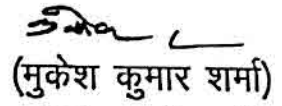 (मुकेश कुमार शर्मा)